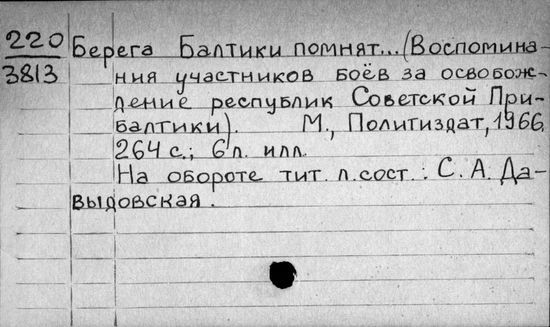 220 Берега Балтики помнят... (Воспомина-
3813 ния участников боёв за освобож-
дение республик Советской При-
балтики). М., Политиздат, 1966.
264 с.; 6 л. илл.
На обороте тит. л. сост.: С. А. Да-
выдовская.